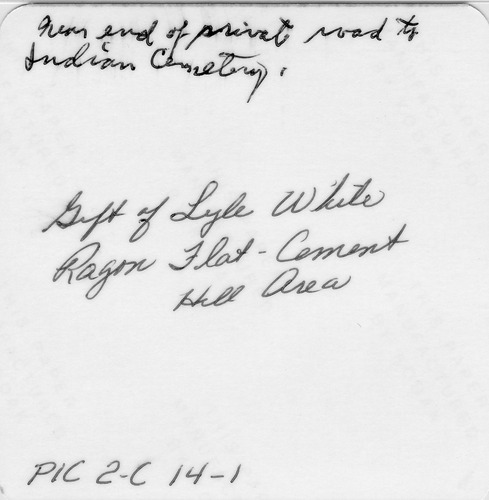 Near end of private road to
Indian Cemetery.
Gift of Lyle White
Ragon Flat - Cement
Hill Area
PIC 2-C 14-1